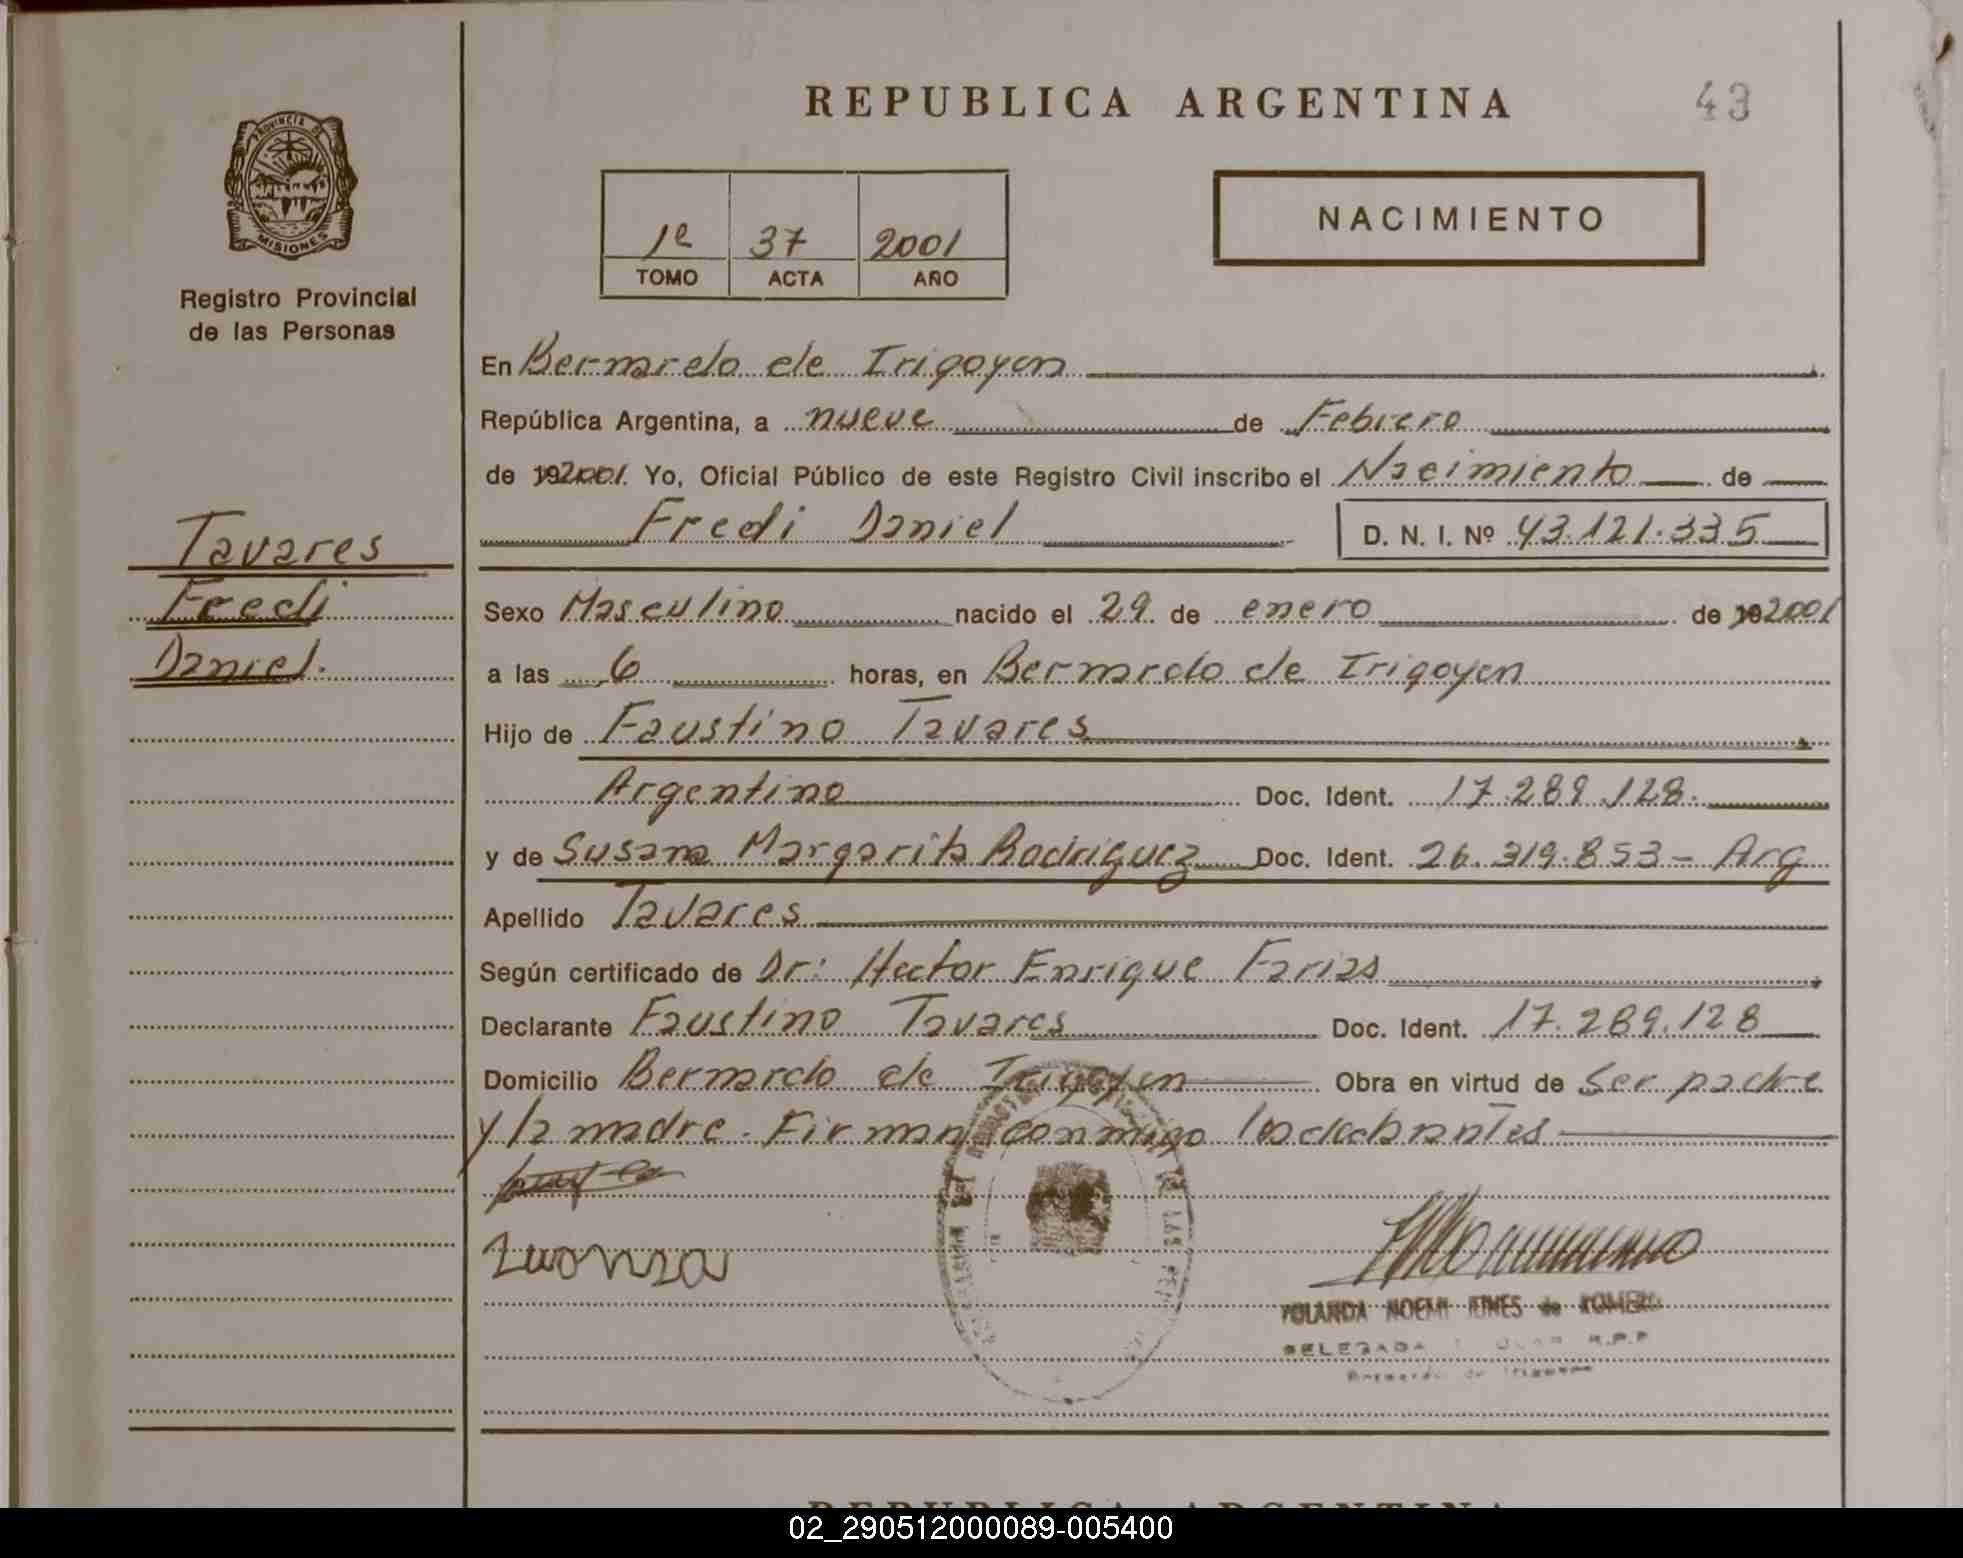 REPUBLICA ARGENTINA
43
PROVINCIA DE
MISIONES
Registro Provincial
de las Personas
1e 37 2001
TOMO ACTA AÑO
NACIMIENTO
En Bernardo de Irigoyen
República Argentina, a nueve de Febrero
de 192001. Yo, Oficial Público de este Registro Civil inscribo el Nacimiento de
Fredi Daniel D. N. I. Nº 43.121.335
Tavares
Fredi
Daniel.
Sexo Masculino nacido el 29 de enero de 192001
a las 6 horas, en Bernardo de Irigoyen
Hijo de Faustino Tavares
Argentino Doc. Ident. 17.289.128.
y de Susana Margarita Rodriguez Doc. Ident. 26.319.853- Arg
Apellido Tavares
Según certificado de Dr: Hector Enrique Farias
Declarante Faustino Tavares Doc. Ident. 17.289.128
Domicilio Bernardo de Irigoyen Obra en virtud de Ser padre
y la madre. Firman conmigo
YOLANDA NOEMI de ROMERO
DELEGADA R.P.P
Bernardo de Irigoyen
REPUBLICA ARGENTINA
02_290512000089-005400